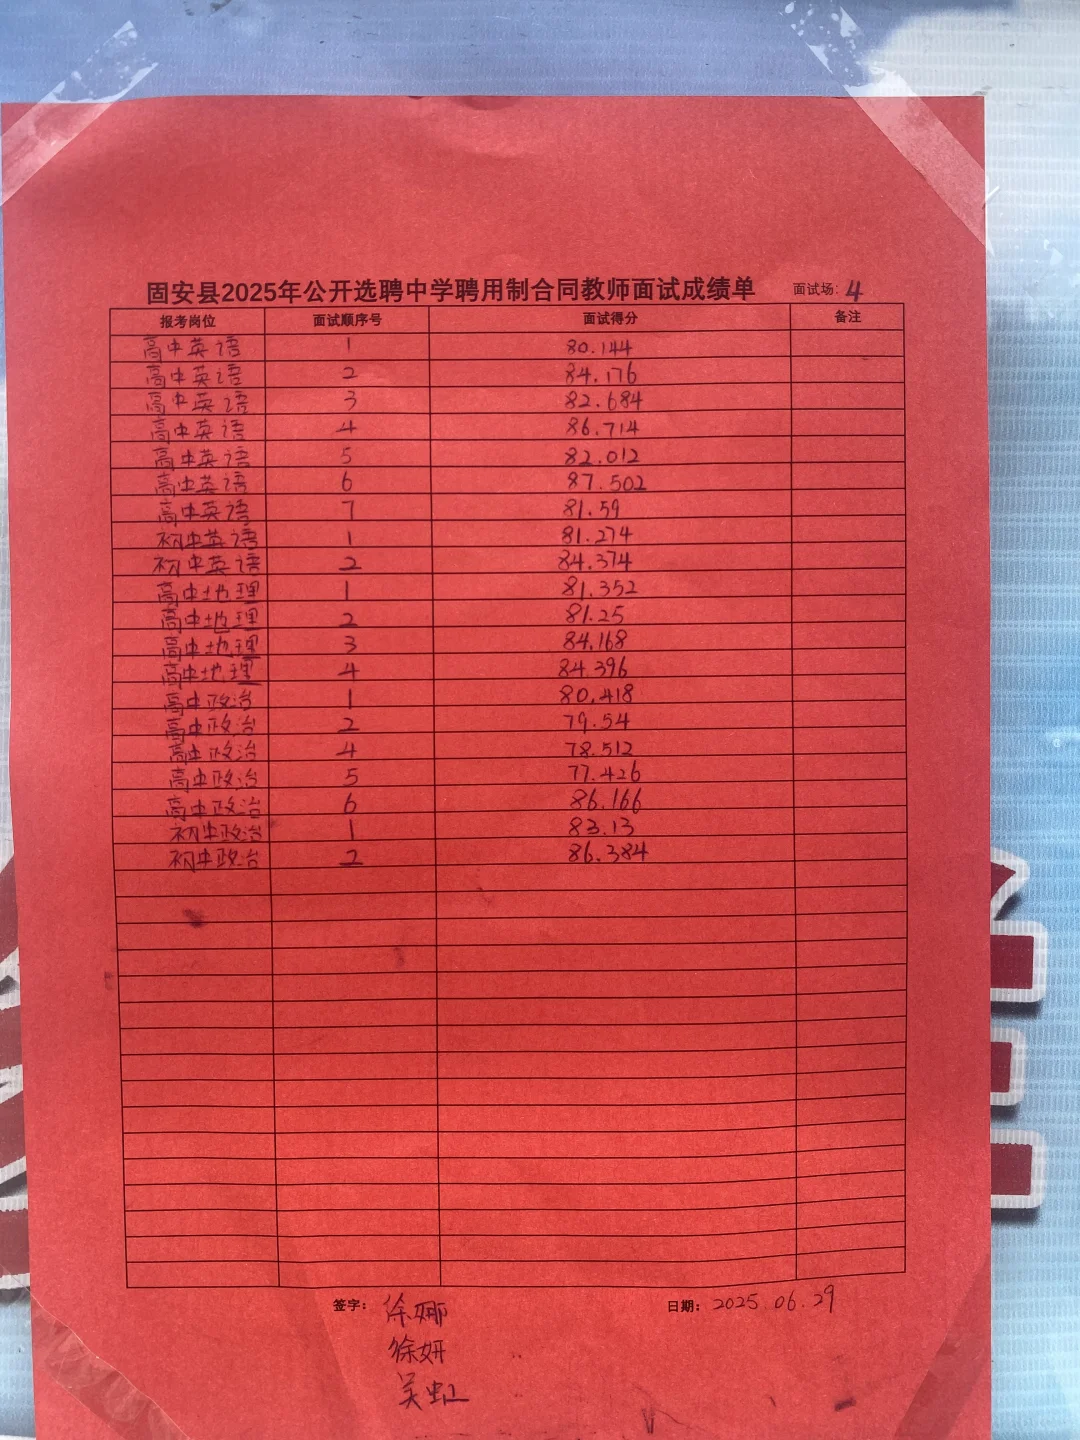 固安县2025年公开选聘中学聘用制合同教师面试成绩单 面试场: 4
报考岗位 面试顺序号 面试得分 备注
高中英语 1 80.144
高中英语 2 84.176
高中英语 3 82.684
高中英语 4 86.714
高中英语 5 82.012
高中英语 6 87.502
高中英语 7 81.59
初中英语 1 81.274
初中英语 2 84.374
高中地理 1 81.352
高中地理 2 81.25
高中地理 3 84.168
高中地理 4 84.396
高中政治 1 80.418
高中政治 2 79.54
高中政治 4 78.512
高中政治 5 77.426
高中政治 6 86.166
初中政治 1 83.13
初中政治 2 86.384
签字: 徐娜 日期: 2025.06.29
徐妍
吴虹